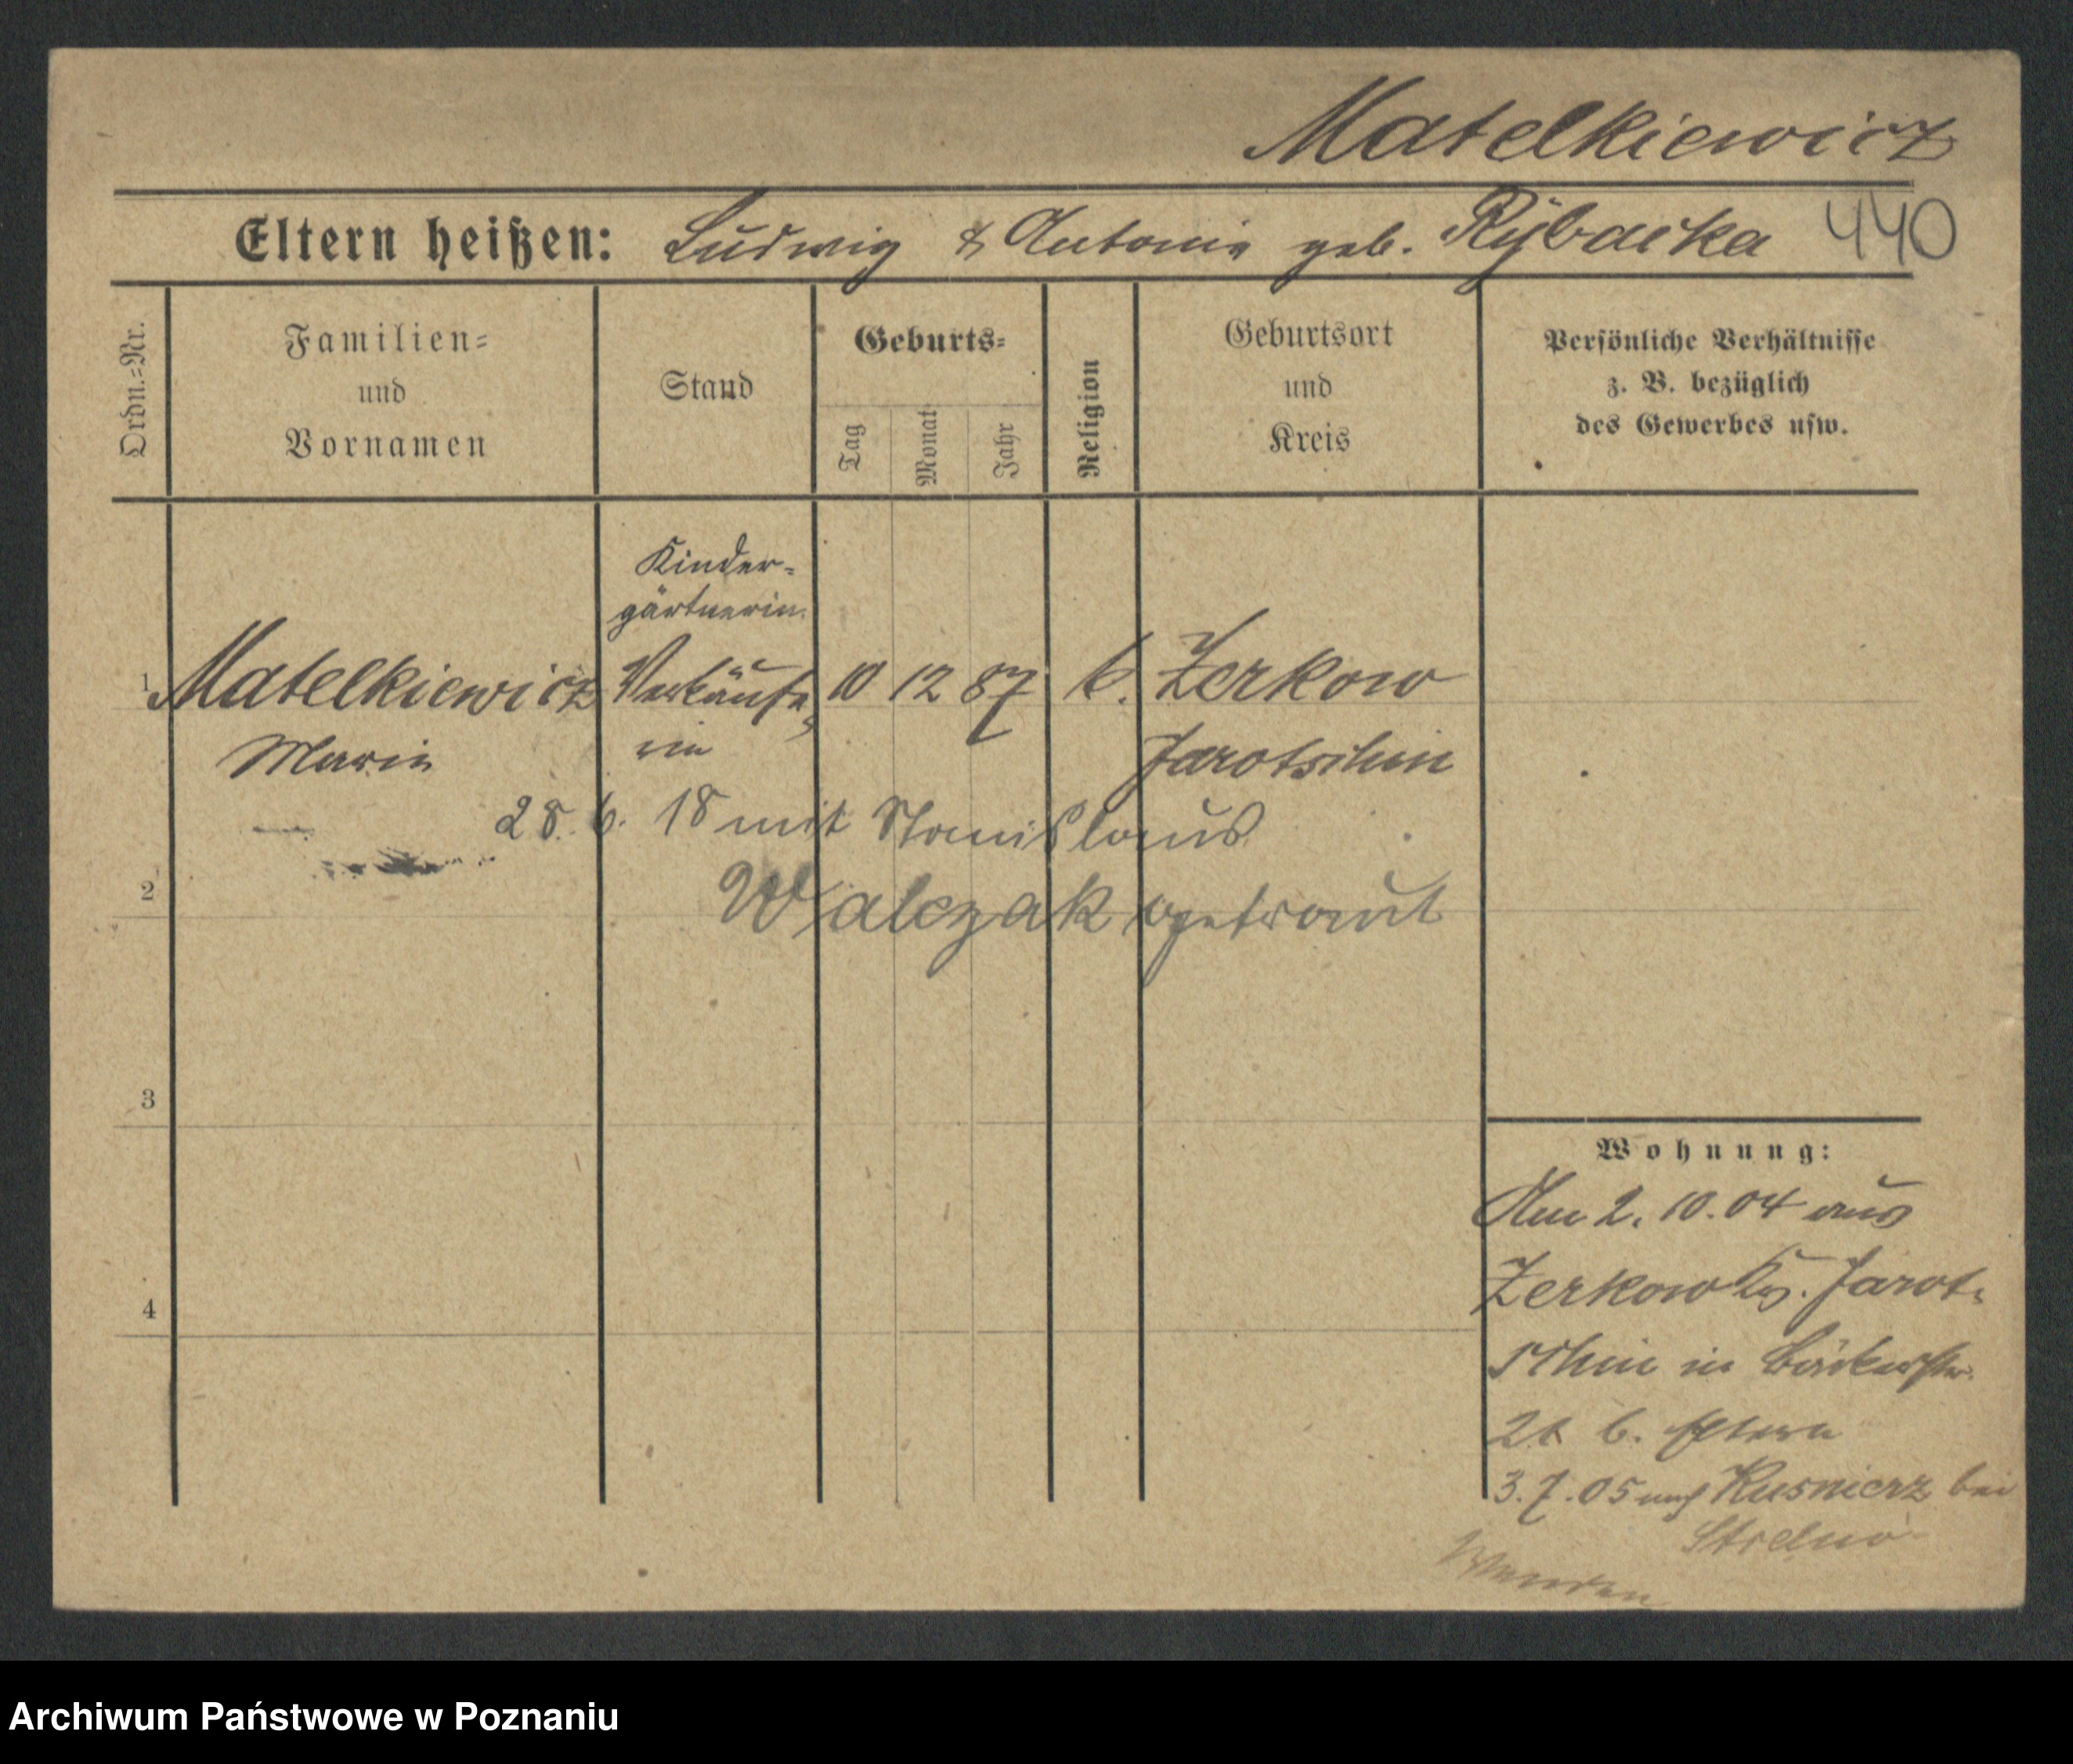 Matelkiewicz
Eltern heißen: Ludwig & Antonie geb. Rybacka 440
Ordn.=Nr.
Familien=
und
Vornamen
Stand
Geburts=
Tag
Monat
Jahr
Religion
Geburtsort
und
Kreis
Persönliche Verhältnisse
z. B. bezüglich
des Gewerbes usw.
Kinder=
gärtnerin
1 Matelkiewicz Verkäufe= 10 12 87 k. Zerkow
Marie rin Jarotschin
28. 6. 18 mit Stanislaus
2
Walczak getraut
3
Wohnung:
Am 2. 10. 04 aus
Zerkow Kr. Jarot=
4
schin in Bäckerstr.
b. Eltern
3. 7. 05 nach Kusnierz bei
Strelno
Wenden
Archiwum Państwowe w Poznaniu